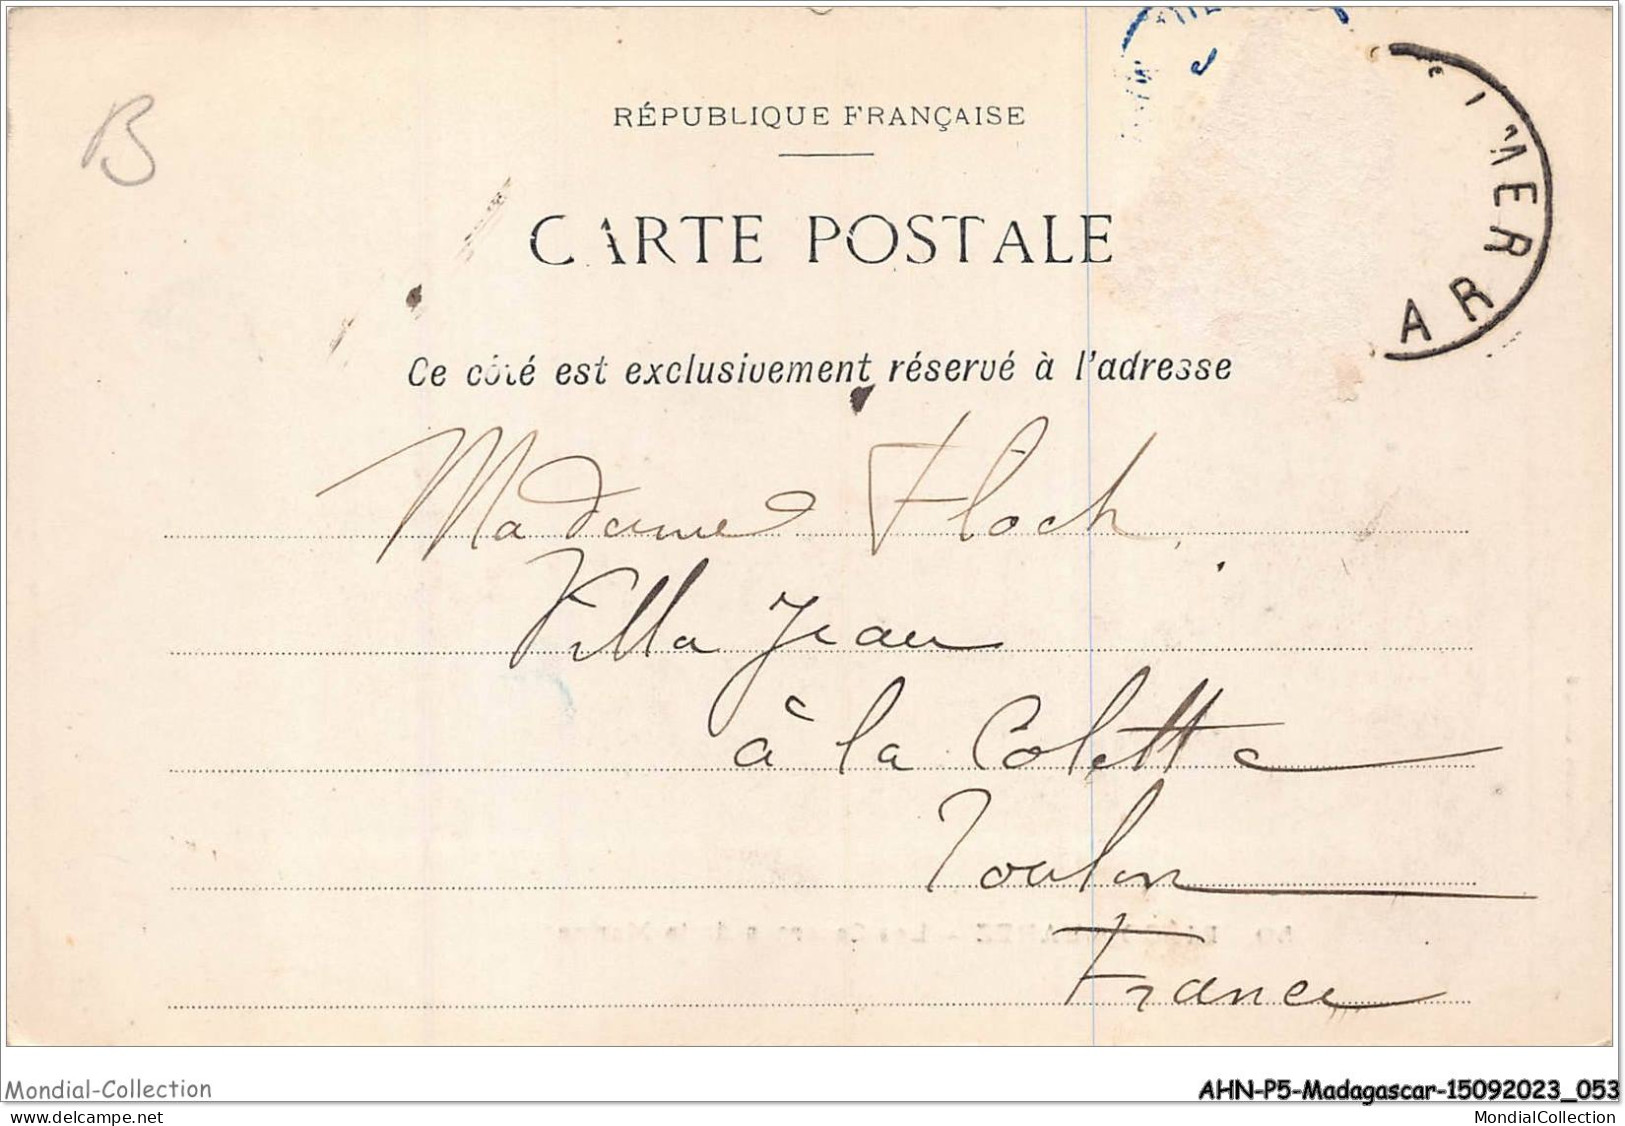 B
RÉPUBLIQUE FRANÇAISE
CARTE POSTALE
Ce côté est exclusivement réservé à l'adresse
Madame Floch
Villa Jean
à la Colette
Toulon
France
Mondial-Collection
AHN-P5-Madagascar-15092023_053
delcampe.net
MondialCollection